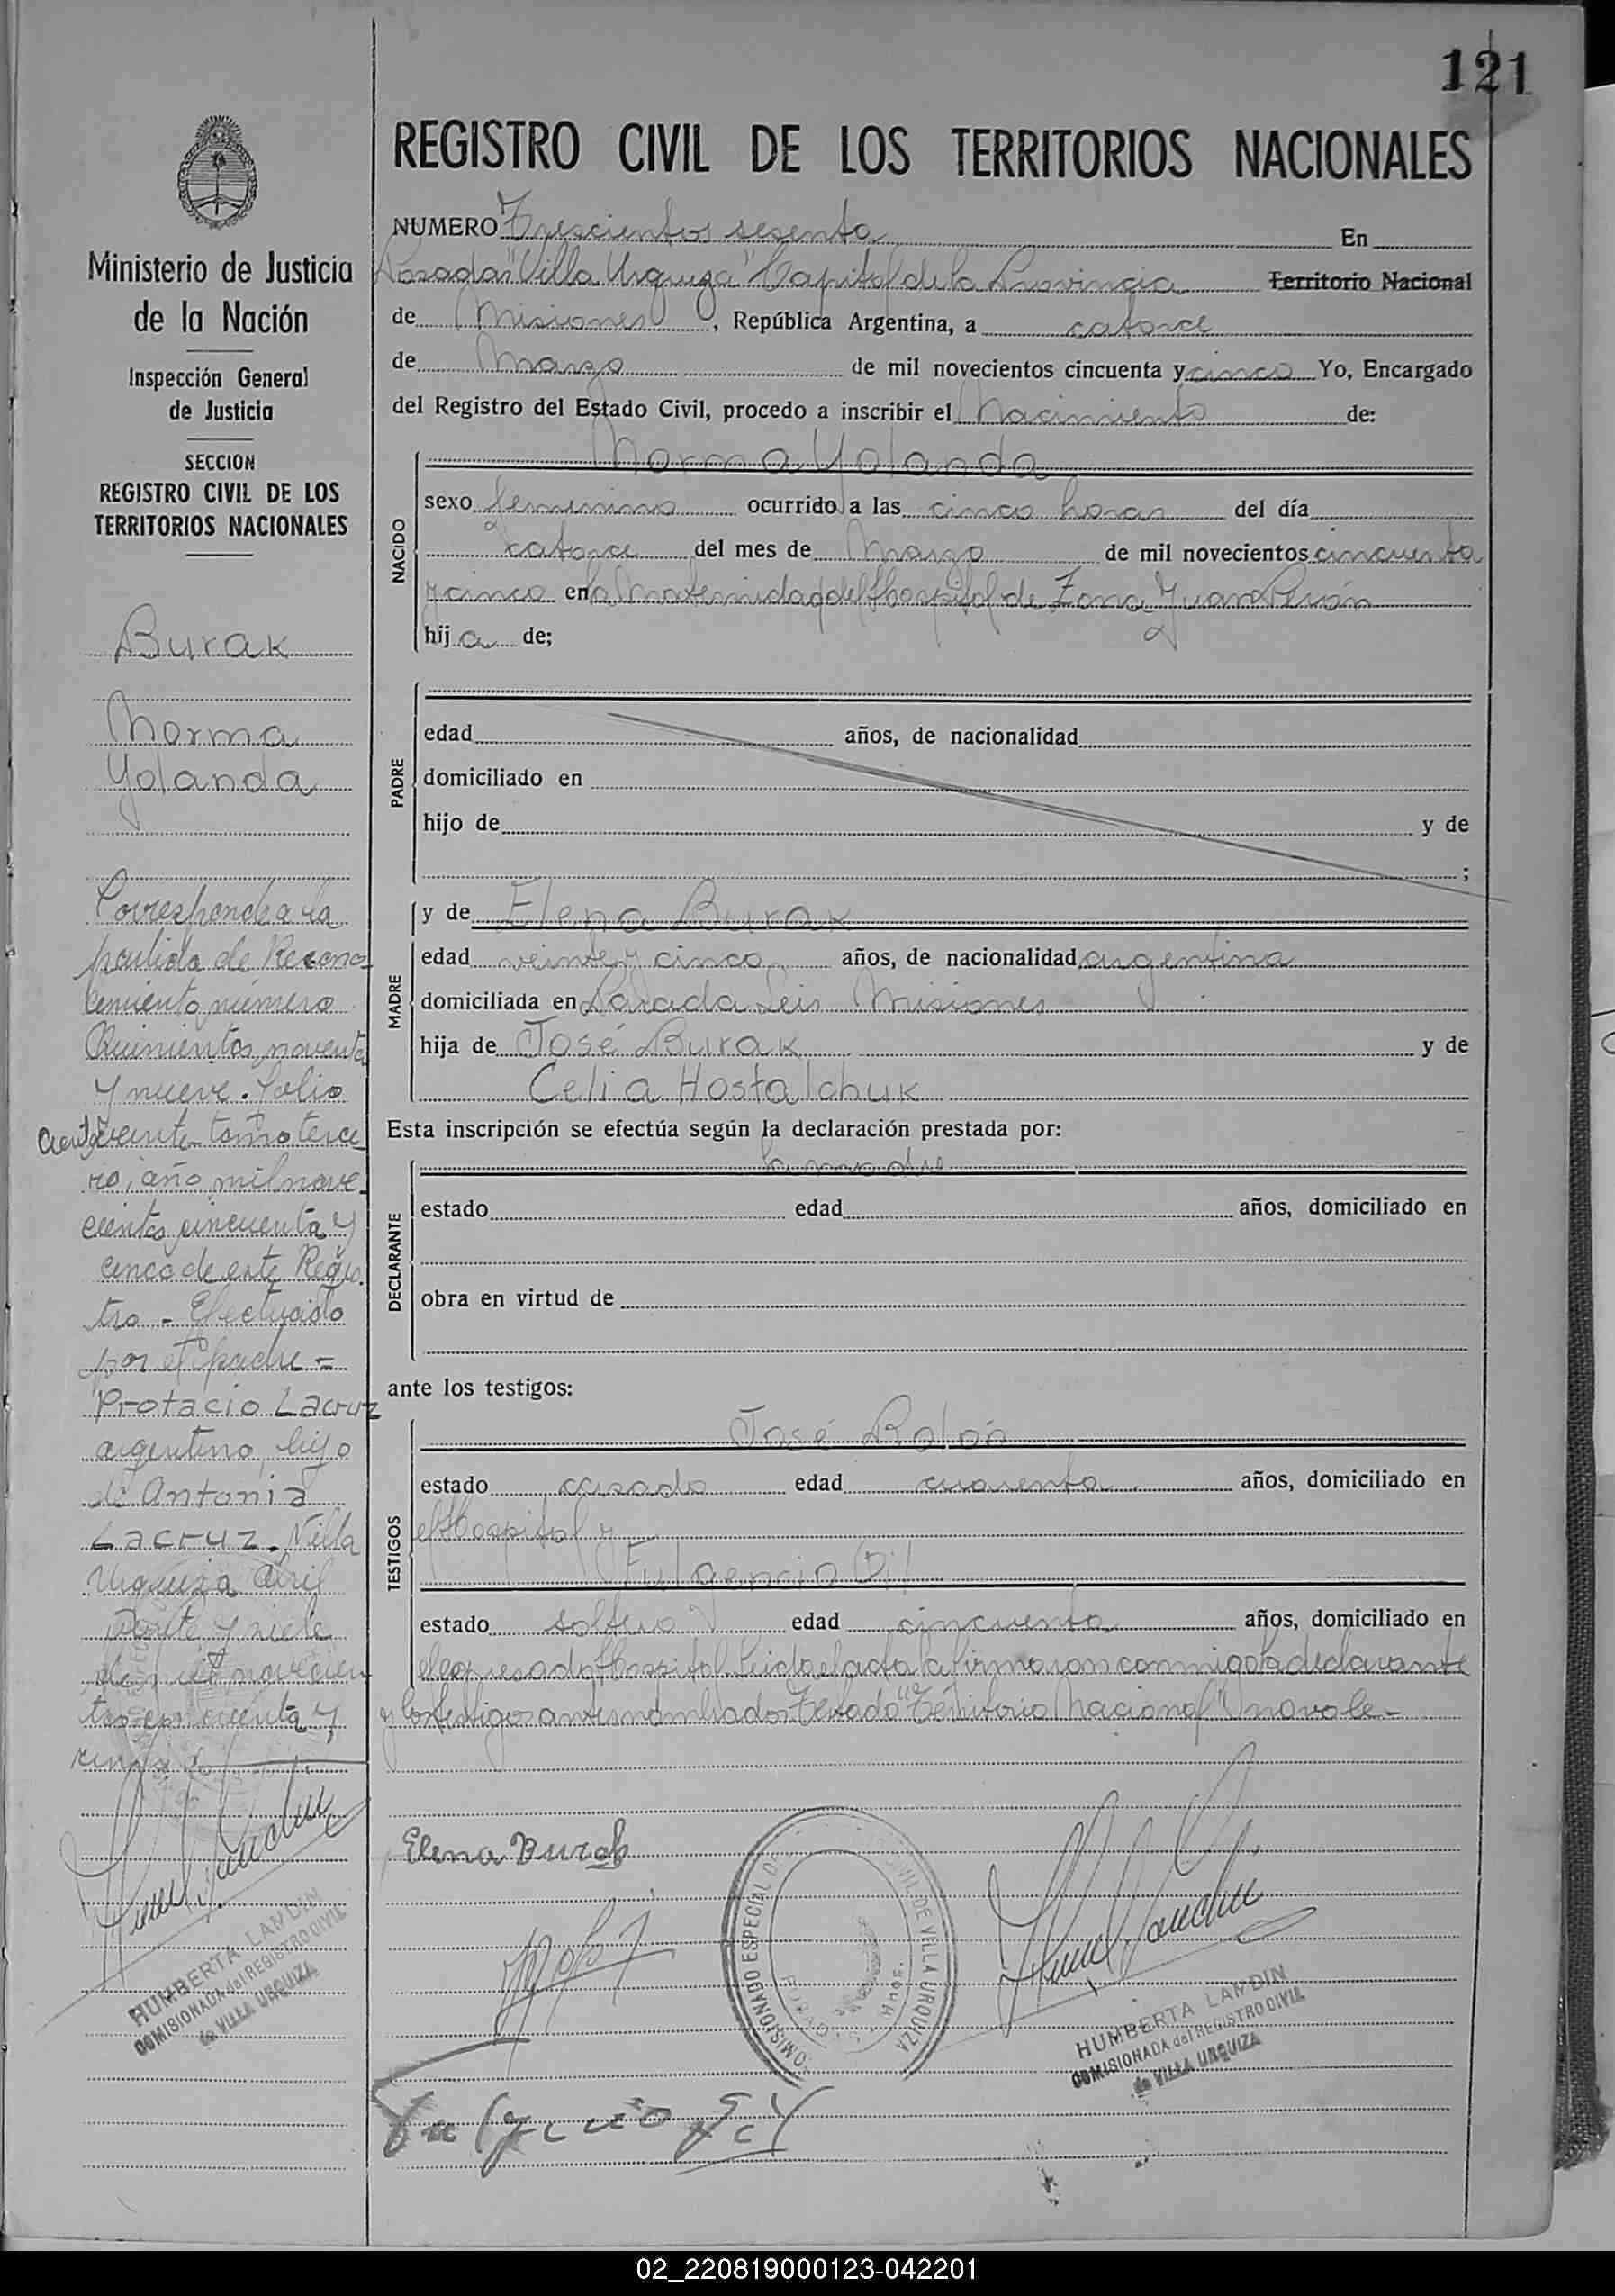 121
REGISTRO CIVIL DE LOS TERRITORIOS NACIONALES
NUMERO Trescientos sesenta En
Posadas "Villa Urquiza" Capital de la Provincia Territorio Nacional
de Misiones, República Argentina, a catorce
de Marzo de mil novecientos cincuenta y cinco Yo, Encargado
del Registro del Estado Civil, procedo a inscribir el Nacimiento de:
NACIDO
Norma Yolanda
sexo femenino ocurrido a las cinco horas del día
catorce del mes de Marzo de mil novecientos cincuenta
y cinco en la Maternidad del Hospital de Zona Juan Perón
hija de;
PADRE
edad años, de nacionalidad
domiciliado en
hijo de y de
;
MADRE
y de Elena Burak
edad veinte y cinco años, de nacionalidad argentina
domiciliada en Picada Seis Misiones
hija de José Burak y de
Celia Hostalchuk
Esta inscripción se efectúa según la declaración prestada por:
DECLARANTE
la madre
estado edad años, domiciliado en
obra en virtud de
ante los testigos:
TESTIGOS
José Rolón
estado casado edad cuarenta años, domiciliado en
el Hospital y
Fulgencio Gil
estado soltero edad cincuenta años, domiciliado en
el expresado Hospital. Leida el acta la firmaron conmigo la declarante
y los testigos antes nombrados Testado "Territorio Nacional" no vale-
Elena Burak
Fulgencio Gil
COMISIONADO ESPECIAL DE CIVIL DE VILLA URQUIZA
HUMBERTA LANDIN
COMISIONADA del REGISTRO CIVIL
de VILLA URQUIZA
Ministerio de Justicia
de la Nación
Inspección General
de Justicia
SECCION
REGISTRO CIVIL DE LOS
TERRITORIOS NACIONALES
Burak
Norma
Yolanda
Corresponde a la
partida de Recono
cimiento número
Quinientos noventa
y nueve. Folio
ciento veinte tomo terce
ro, año mil nove
cientos cincuenta y
cinco de este Regis
tro - Efectuado
por el padre =
Protacio Lacruz
argentino, hijo
de Antonia
Lacruz. Villa
Urquiza Abril
veinte y siete
de mil novecien
tos cincuenta y
cinco
HUMBERTA LANDIN
COMISIONADA del REGISTRO CIVIL
de VILLA URQUIZA
02_220819000123-042201